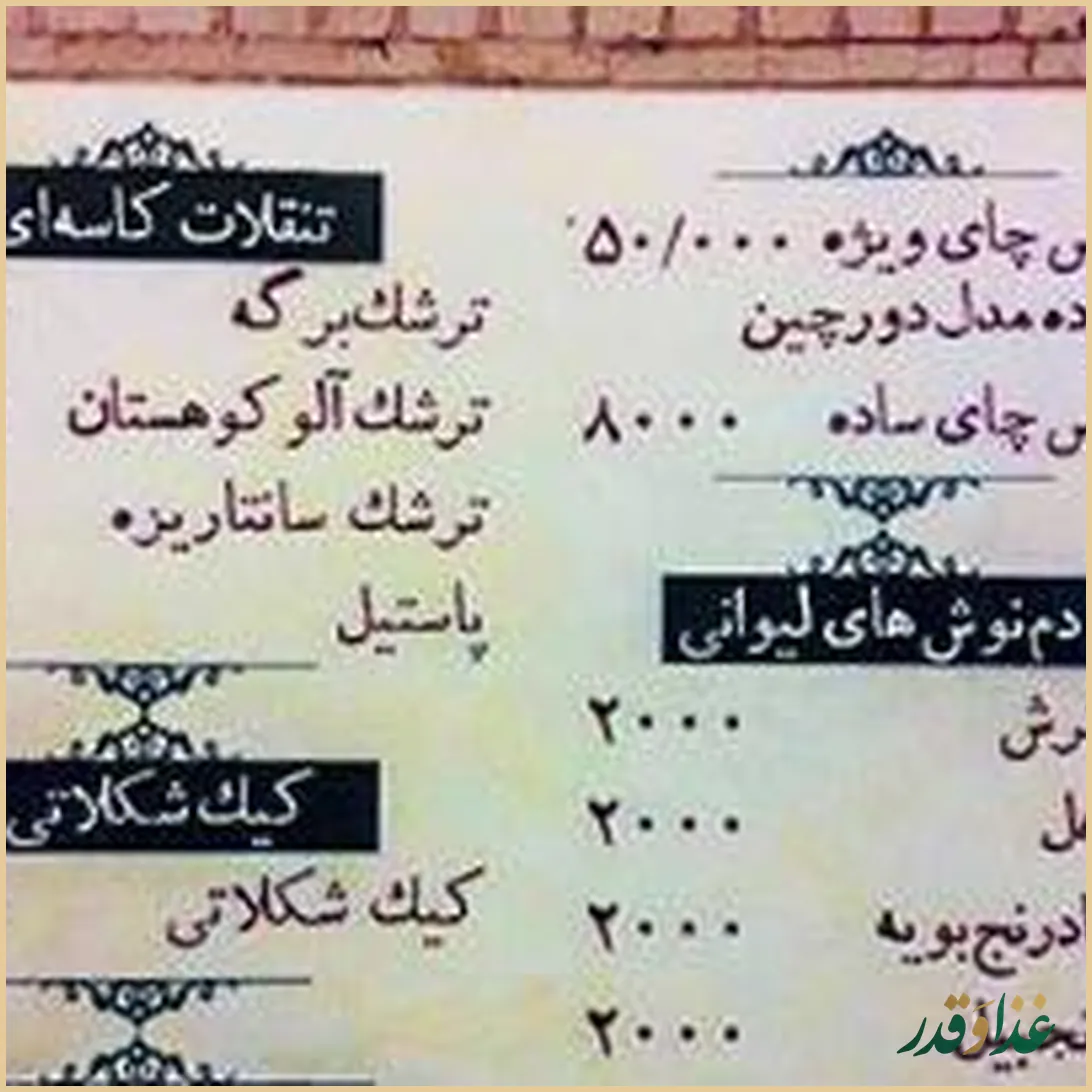 چای ویژه ۵۰/۰۰۰
مدل دورچین
چای ساده ۸۰۰۰
دم‌نوش های لیوانی
۲۰۰۰
۲۰۰۰
۲۰۰۰
۲۰۰۰
تنقلات کاسه‌ای
ترشك برگه
ترشك آلو کوهستان
ترشك سانتاریزه
پاستیل
کیك شکلاتی
کیك شکلاتی
غذا و قدر